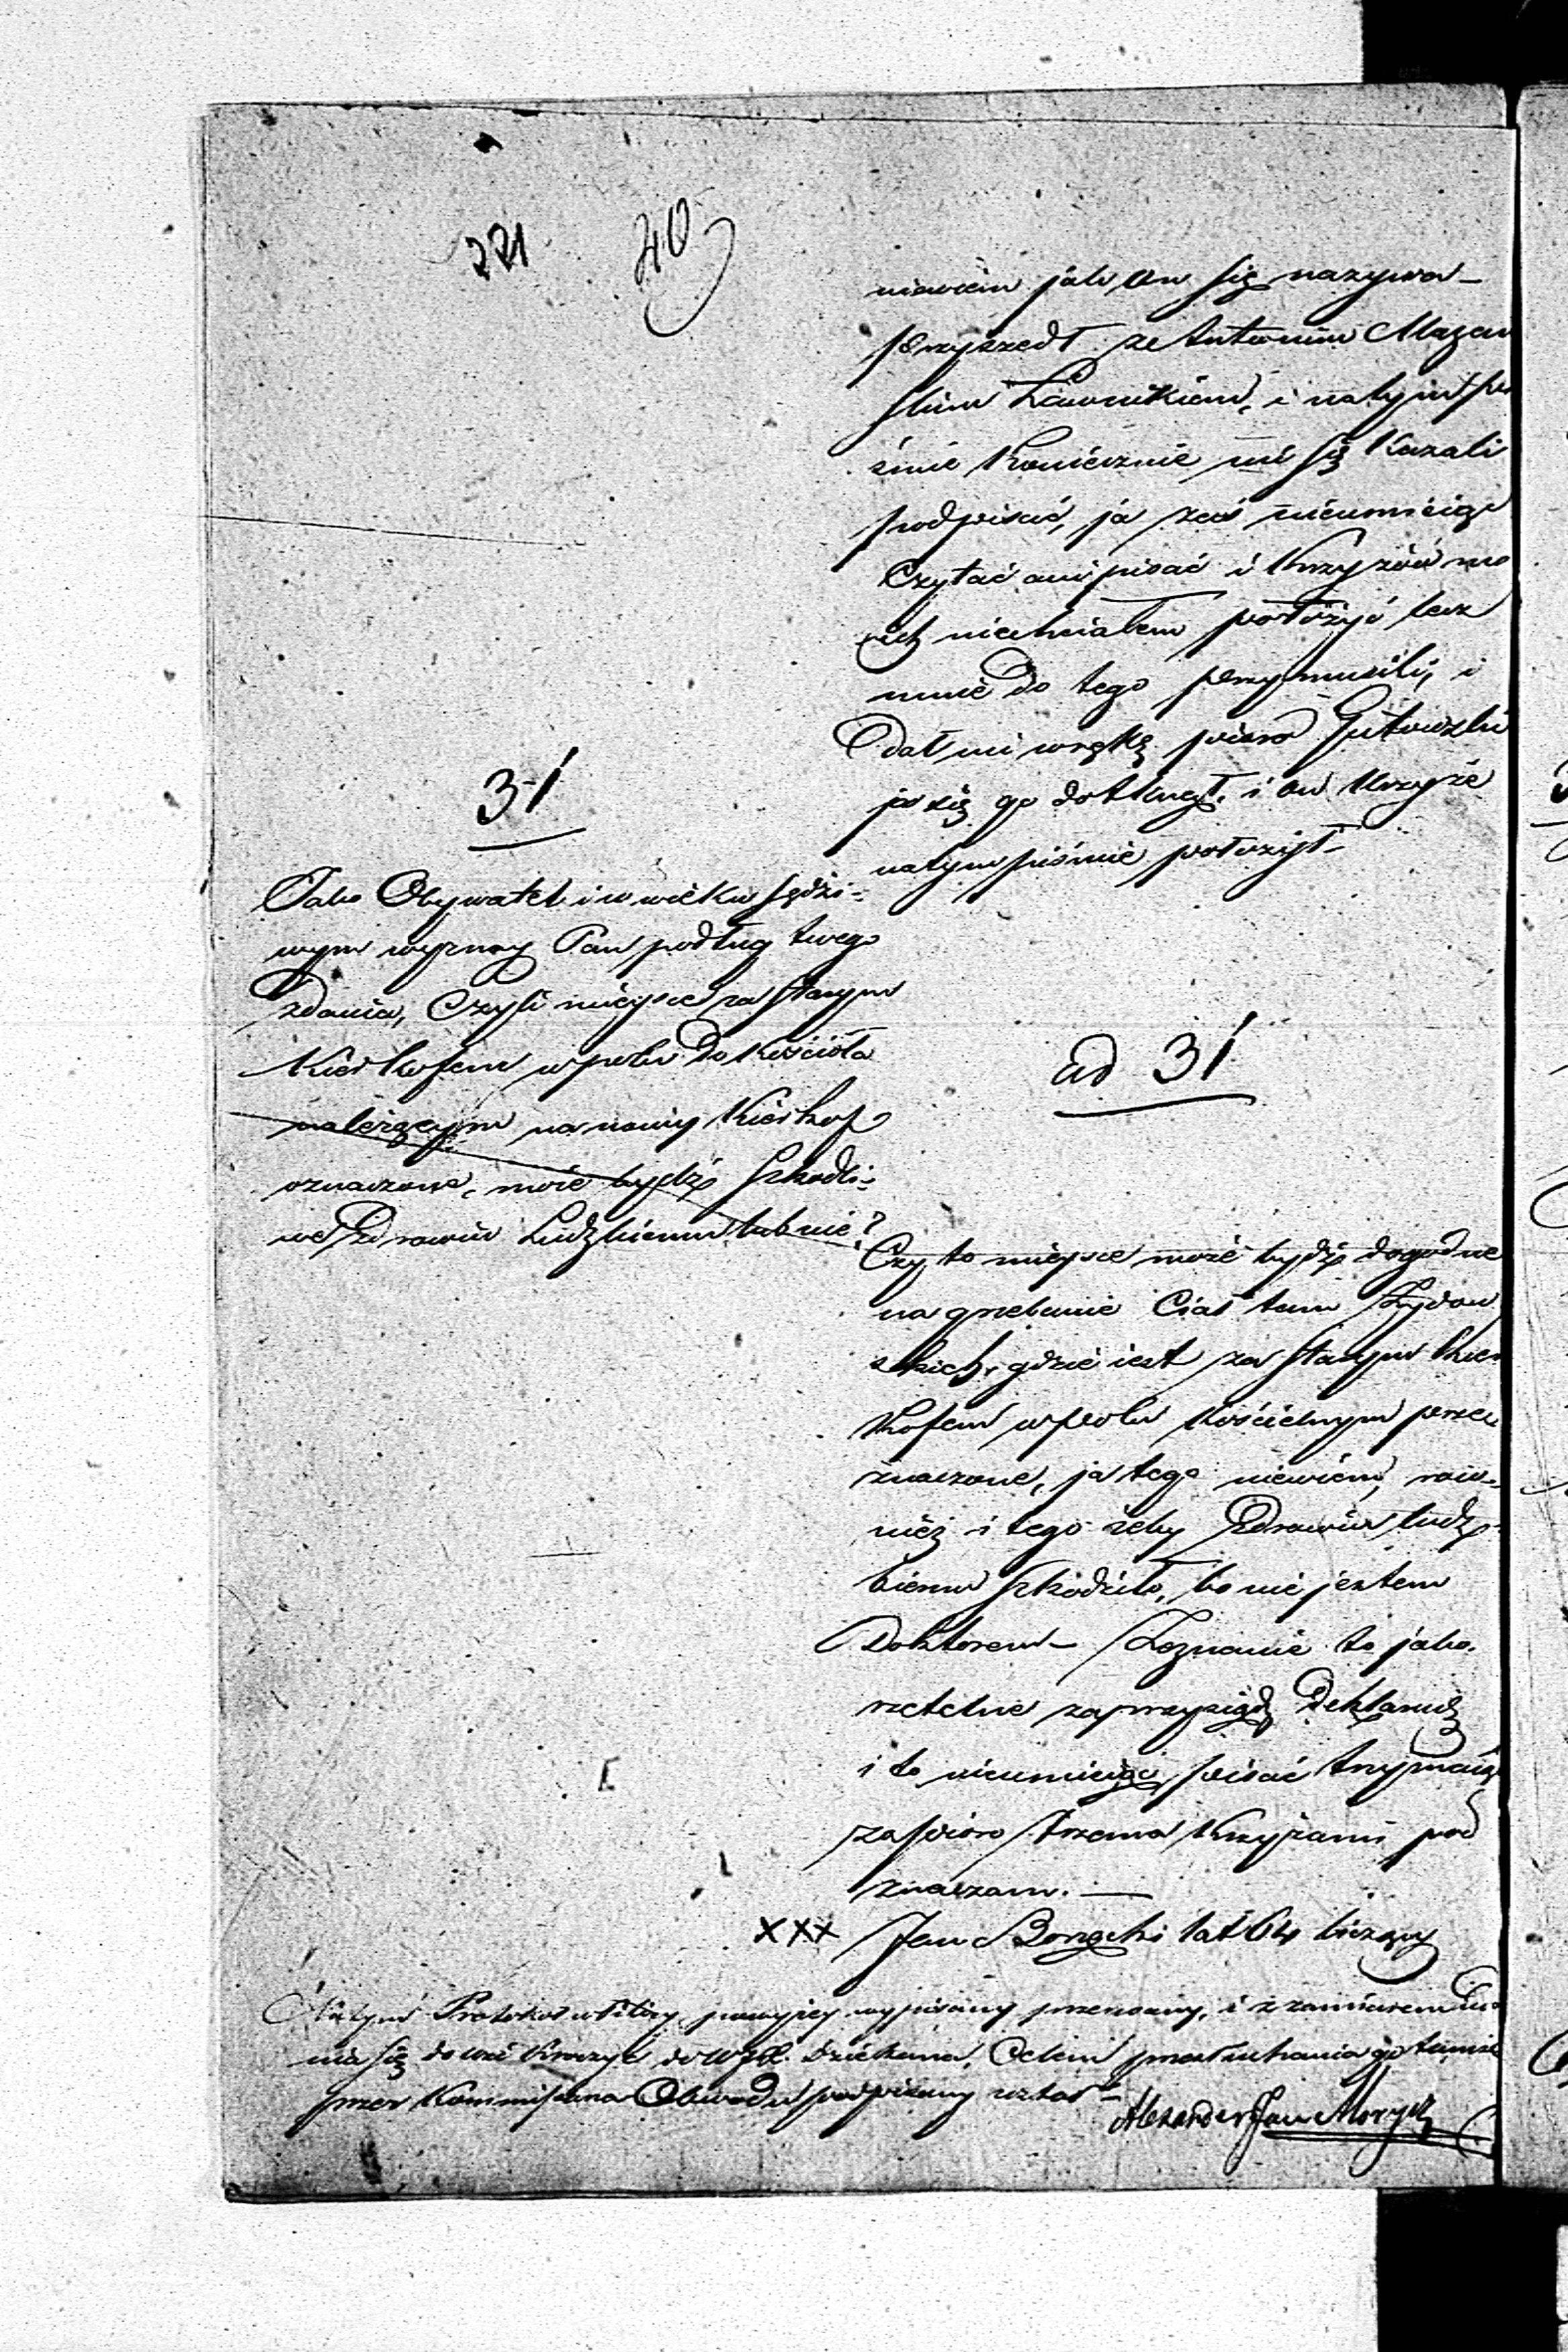 221 40
niewiem jak on się nazywa –
przyszedł ze Antonim Mazan
skim Ławnikiem, i natym pi
śmie koniecznie mi się kazali
podpisać, ja zaś nieumieiąc
Czytać ani pisać i krzyżów mo
ich niechciałem położyć lecz
mnie do tego przymusili, i
dał mi wrękę pióro Gutowski
ja się go dotknął, i on krzyże
natym piśmie położył –
31
Jako Obywatel i w wieku sędzi=
wym wyznay Pan podług twego
zdania, Czyli mieysce za starym
Kierkofem w polu do kościoła
należącym na nowy Kierkof
oznaczone, może bydź szkodli=
we Zdrowiu Ludzkiemu lub nie?
ad 31
Czy to mieysce może bydź dogodne
na grzebanie Ciał tam Żydow
skich, gdzie iest za starym Kier
kofem w polu kościelnym prze
znaczone, ja tego niewiem, rów-
nież i tego żeby Zdrowiu ludz-
kiemu szkodziło, bo nie jestem
Doktorem – Zeznanie to jako
rzetelne zaprzysiądz deklaruię
i to nieumieiąc pisać trzymaiąc
za pióro trzema krzyżami pod
znaczam. —
XXX Jan Borzęcki lat 64 liczący
Protokół powyżey wypisany przerwany, i z zamiarem
nia się do dziekana, Celem przesłuchania go tamże
przez Kommissarza Obwodu podpisany został –
Alexander Jan Moryc